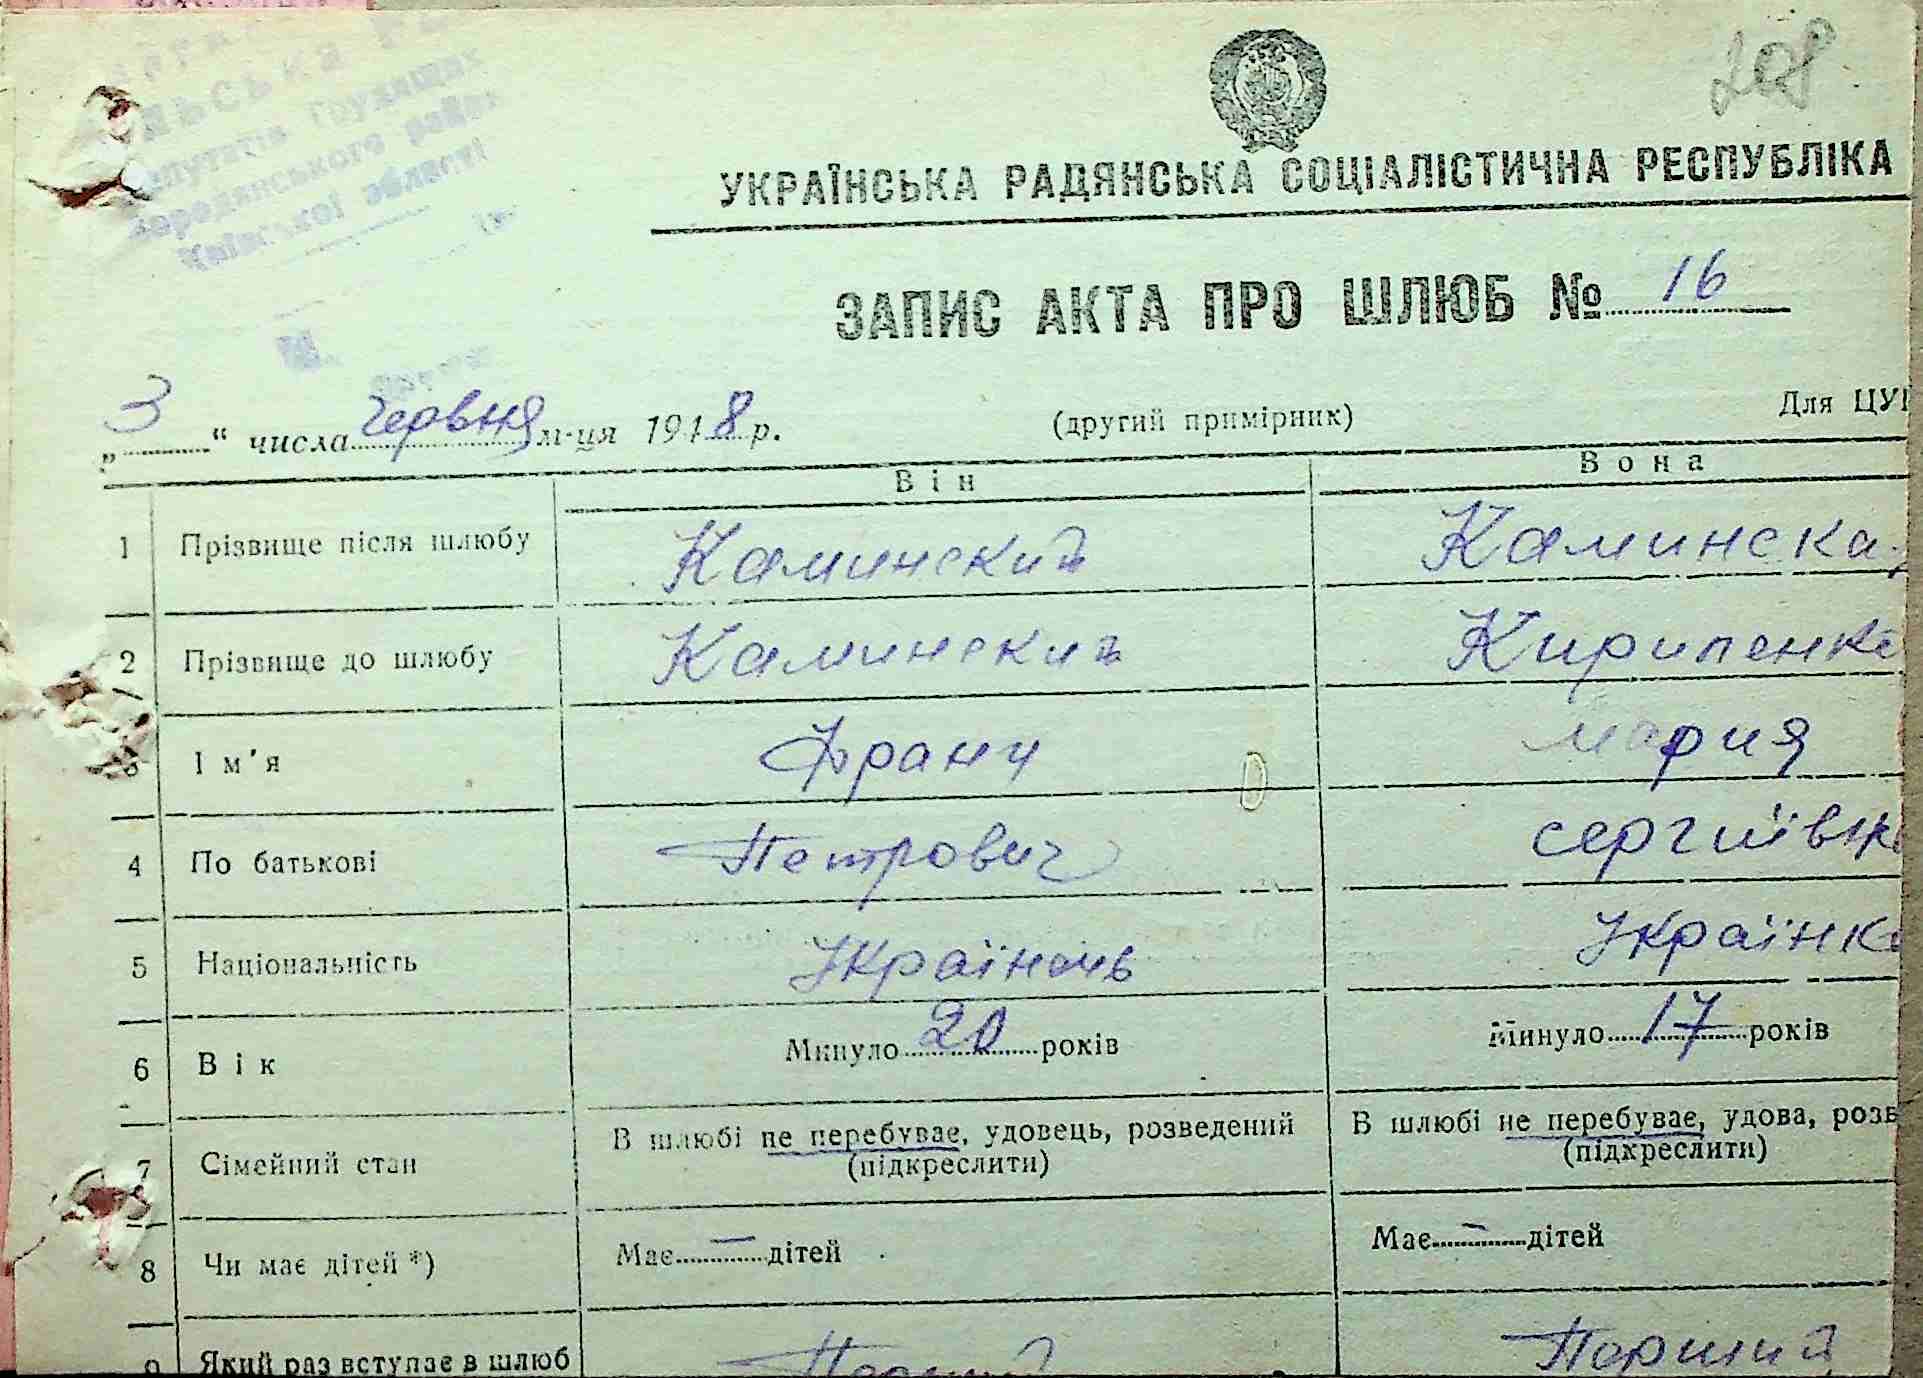 208
депутатів трудящих
Бородянського району
Київської області
УКРАЇНСЬКА РАДЯНСЬКА СОЦІАЛІСТИЧНА РЕСПУБЛІКА
ЗАПИС АКТА ПРО ШЛЮБ № 16
„3“ числа червня м-ця 1948 р. (другий примірник) Для ЦУ
Він Вона
1 Прізвище після шлюбу Каминский Каминска
2 Прізвище до шлюбу Каминский
3 Ім'я Франц мария
4 По батькові Петрович
5 Національність Українець Українк
6 Вік Минуло 20 років Минуло 17 років
7 Сімейний стан В шлюбі не перебуває, удовець, розведений В шлюбі не перебуває, удова, розв
(підкреслити) (підкреслити)
8 Чи має дітей *) Має – дітей Має – дітей
9 Який раз вступає в шлюб Перший Перший